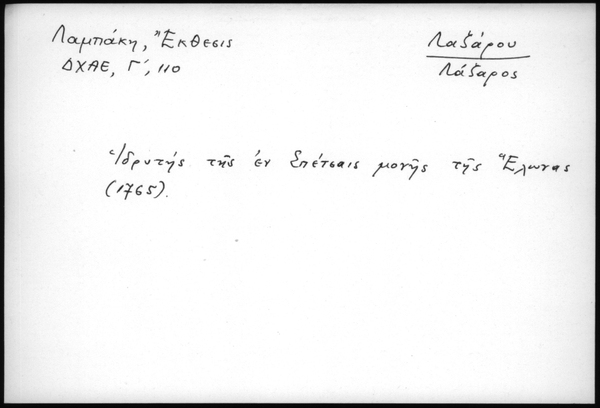 Λαμπάκη, Ἔκθεσις
ΔΧΑΕ, Γ΄, 110
Λαζάρου
Λάζαρος
Ἱδρυτής τῆς ἐν Σπέτσαις μονῆς τῆς Ἕλωνας
(1765).